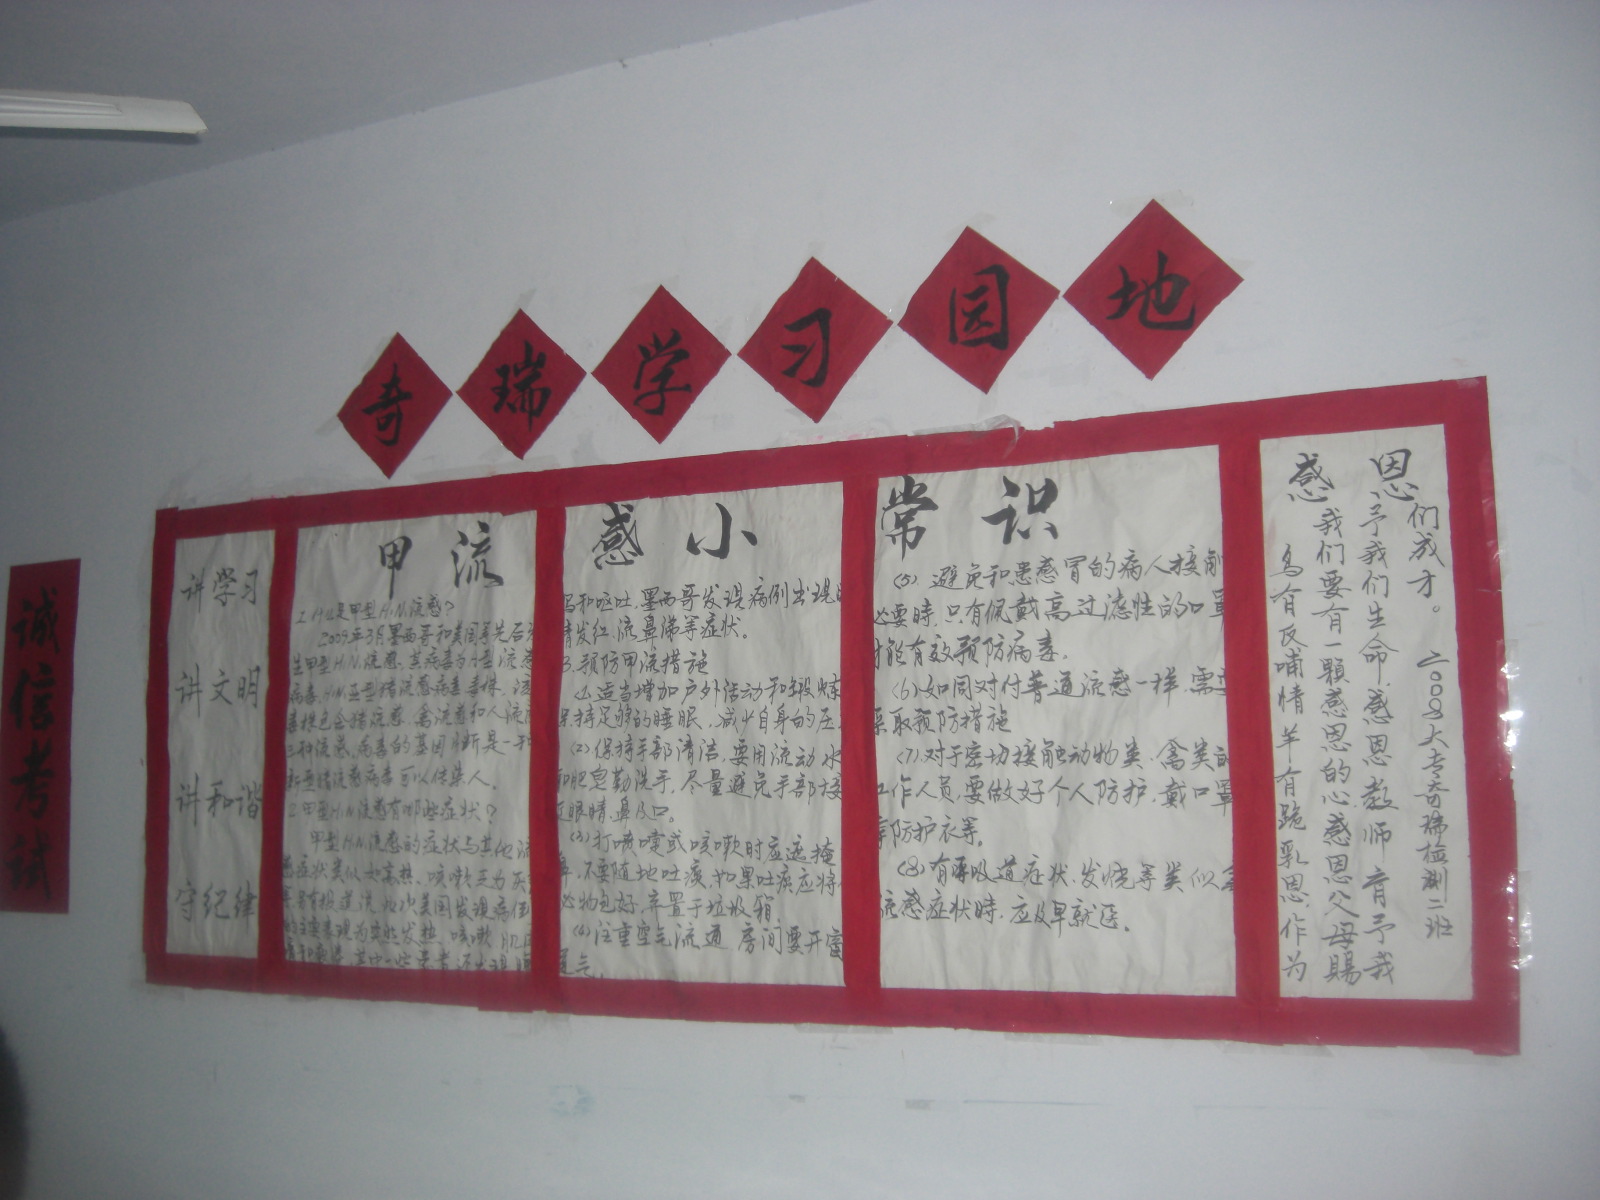 奇瑞学习园地
诚信考试
讲学习
讲文明
讲和谐
守纪律
甲流感小常识
1.什么是甲型H1N1流感?
2009年3月墨西哥和美国等先后
生甲型H1N1流感,其病毒为A型流感
病毒,H1N1亚型猪流感病毒毒株,该
毒株包含猪流感、禽流感和人流
三种流感病毒的基因 断是一种
新型猪流感病毒可以传染人。
2.甲型H1N1流感有哪些症状?
甲型H1N1流感的症状与其他流
感症状类似如高热、咳嗽乏力
等
主要表现为突然发热、咳嗽、肌
痛和 其中一些患者还出现
泻和呕吐,墨西哥发现病例出现
睛发红、流鼻涕等症状。
3.预防甲流措施
(1)适当增加户外活动和锻炼
保持足够的睡眠,减少自身的压
(2)保持手部清洁,要用流动水
和肥皂勤洗手,尽量避免手部接
近眼睛,鼻及口。
(3)打喷嚏或咳嗽时应遮掩
鼻,不要随地吐痰,如果吐痰应将
必物包好,弃置于垃圾箱。
(4)注重空气流通 房间要开窗
通气。
(5)避免和患感冒的病人接触
必要時,只有佩戴高过滤性的口罩
才能有效预防病毒。
(6)如同对付普通流感一样,需要
采取预防措施
(7)对于密切接触动物类、禽类的
工作人员,要做好个人防护,戴口罩
穿防护衣等。
(8)有呼吸道症状、发烧等类似
流感症状時,应及早就医。
感恩
乌有反哺情羊有跪乳恩,作为
我们要有一顆感恩的心感恩父母赐
予我们生命,感恩教师育予我
们成才。
二00八大专奇瑞检测二班